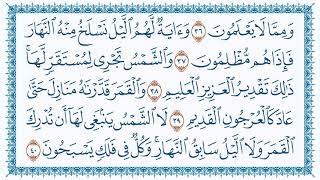 وَمِمَّا لَا يَعْلَمُونَ ٣٦ وَءَايَةٌ لَّهُمُ ٱلَّيْلُ نَسْلَخُ مِنْهُ ٱلنَّهَارَ
فَإِذَا هُم مُّظْلِمُونَ ٣٧ وَٱلشَّمْسُ تَجْرِى لِمُسْتَقَرٍّ لَّهَا ۚ
ذَٰلِكَ تَقْدِيرُ ٱلْعَزِيزِ ٱلْعَلِيمِ ٣٨ وَٱلْقَمَرَ قَدَّرْنَٰهُ مَنَازِلَ حَتَّىٰ
عَادَ كَٱلْعُرْجُونِ ٱلْقَدِيمِ ٣٩ لَا ٱلشَّمْسُ يَنۢبَغِى لَهَآ أَن تُدْرِكَ
ٱلْقَمَرَ وَلَا ٱلَّيْلُ سَابِقُ ٱلنَّهَارِ ۚ وَكُلٌّ فِى فَلَكٍ يَسْبَحُونَ ٤٠